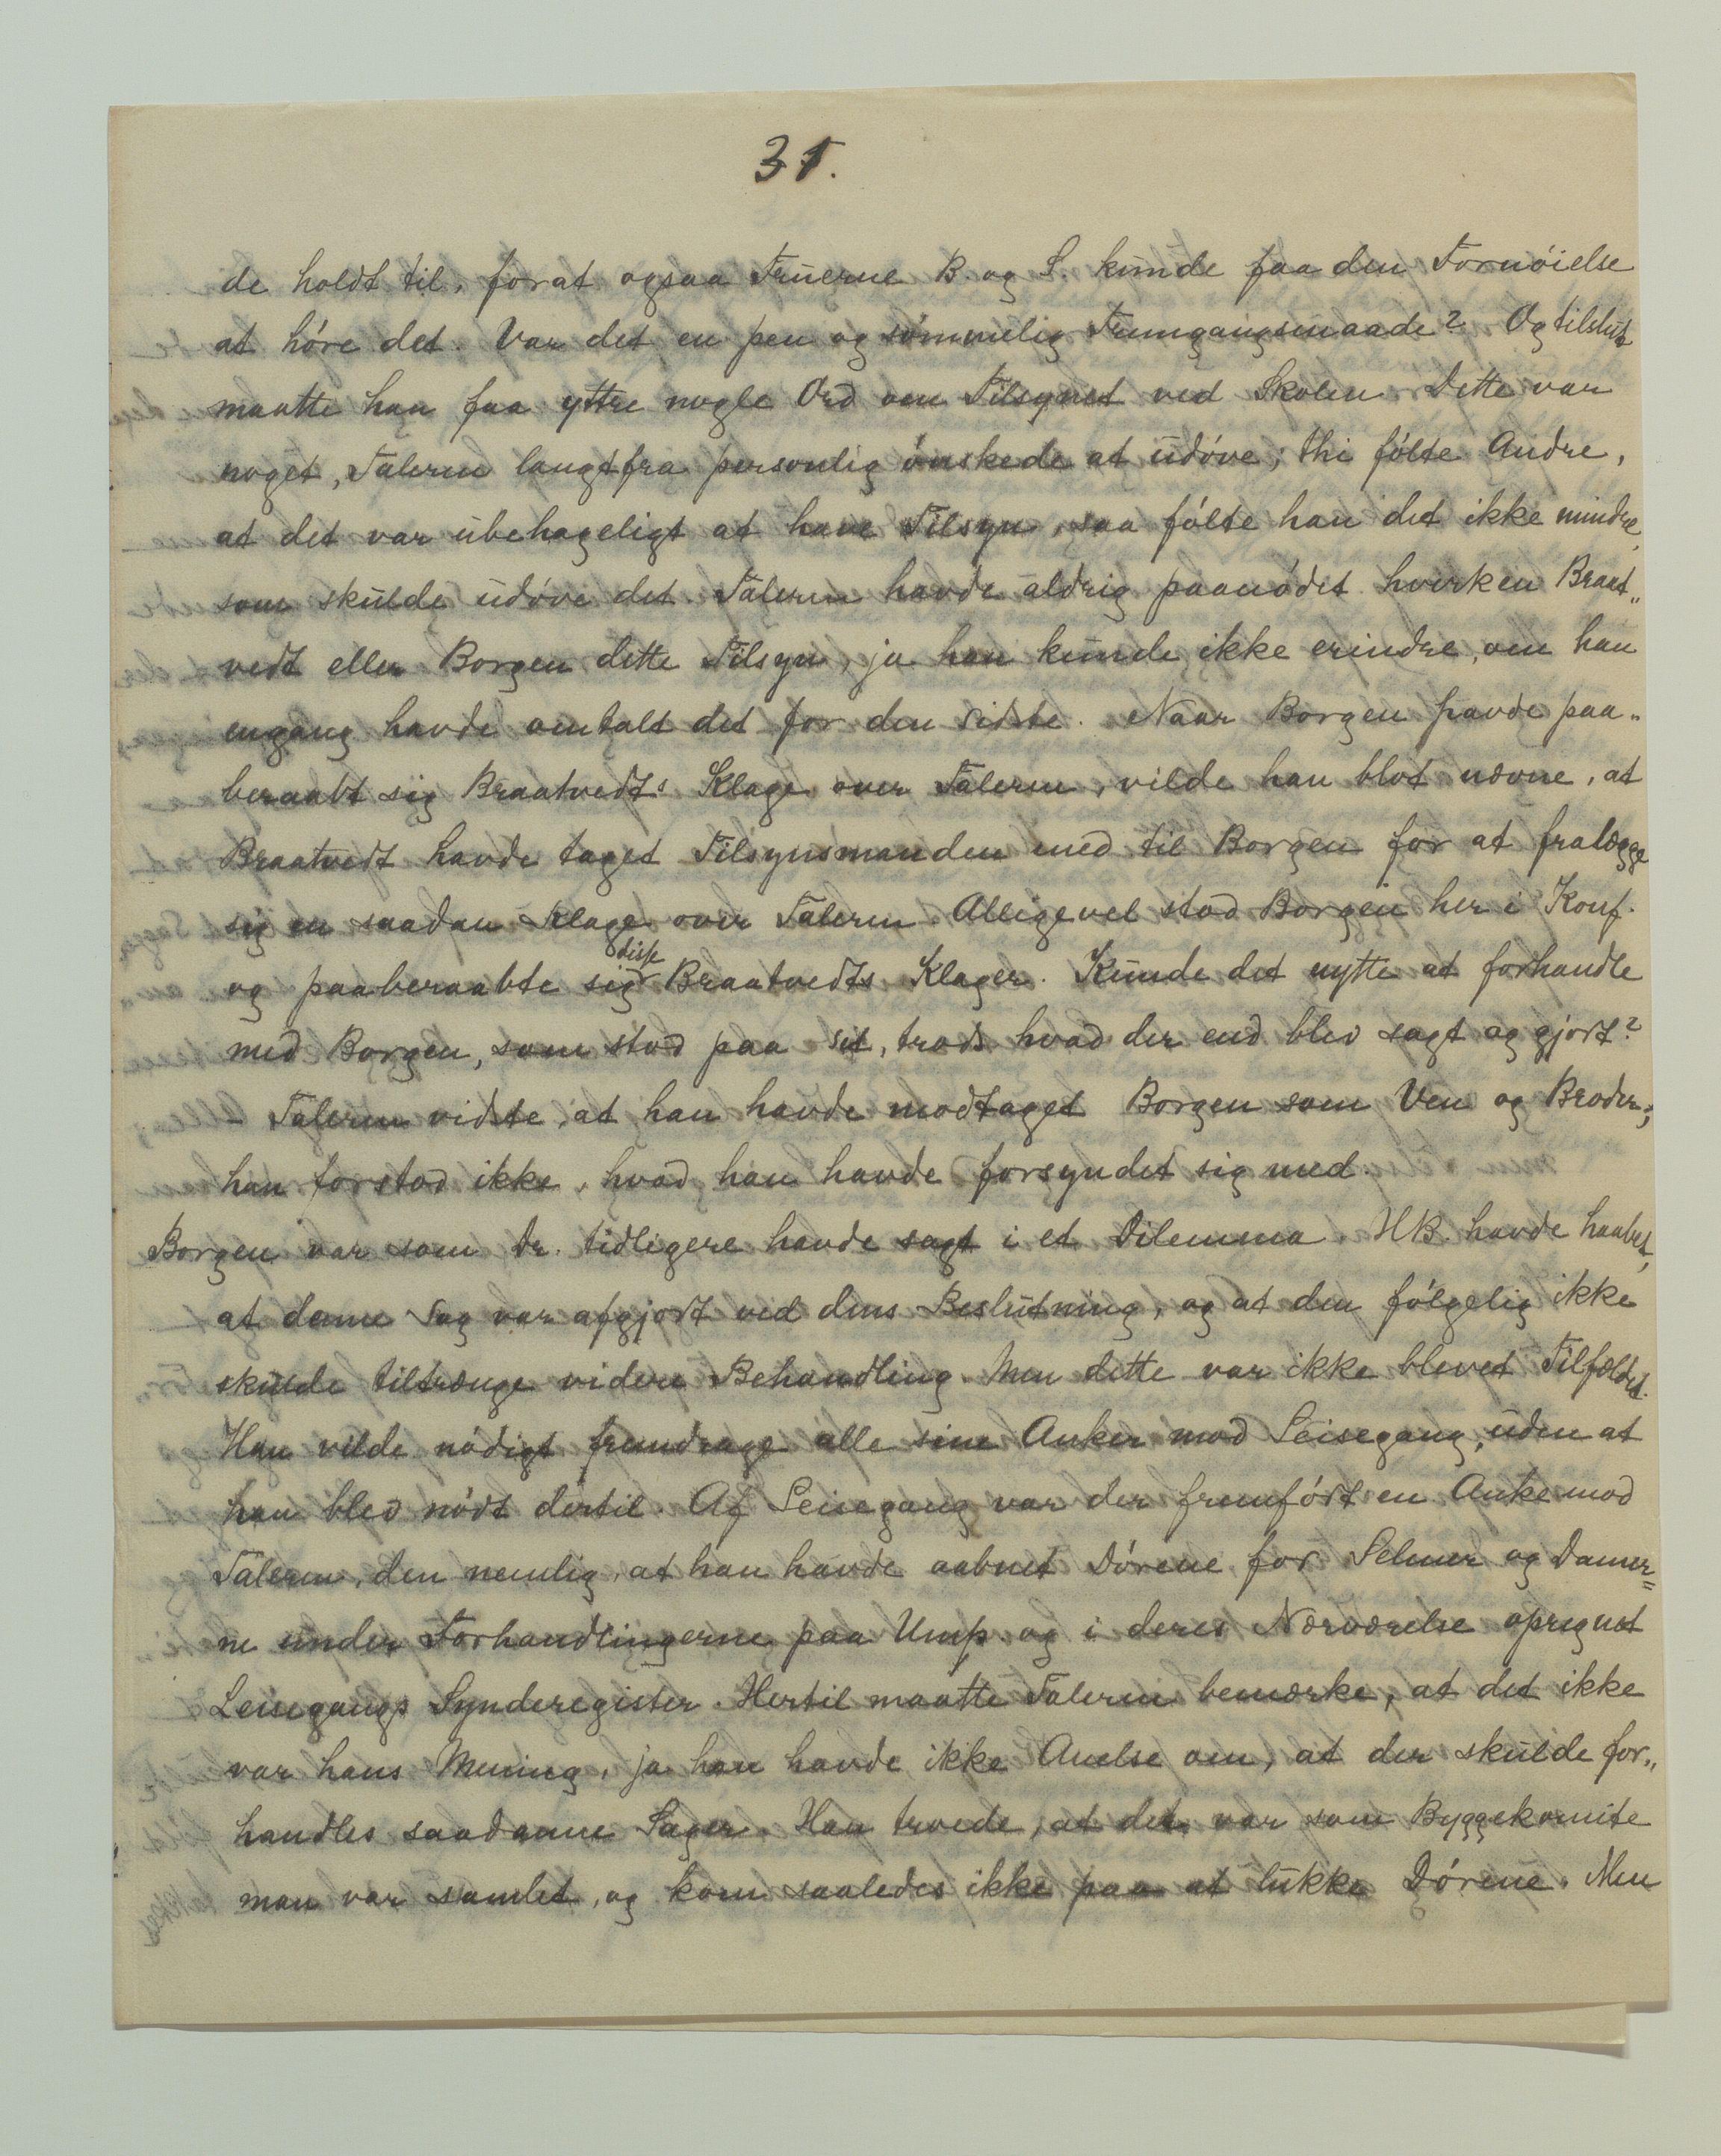 31.
de holdt til, forat ogsaa Fruerne B. og L. kunde faa den Fornöielse
at höre det. Var det en pen og sömmelig Fremgangsmaade? Og tilslut
maatte han faa yttre nogle Ord om Tilsynet ved Skolen. Dette var
noget, Taleren langtfra personlig önskede at udöve; thi fölte Andre,
at det var ubehageligt at have Tilsyn, saa fölte han det ikke mindre,
som skulde udöve det. Taleren havde aldrig paanödet hverken Braat„
vedt eller Borgen dette Tilsyn, ja han kunde ikke erindre, om han
engang havde omtalt det for den sidste. Naar Borgen havde paa„
beraabt sig Braatvedts Klage over Taleren, vilde han blot nævne, at
Braatvedt havde taget Tilsynsmanden med til Borgen for at fralægge
sig en saadan Klage over Taleren. Alligevel stod Borgen her i Konf.
og paaberaabte sig disse Braatvedts Klager. Kunde det nytte at forhandle
med Borgen, som stod paa sit, trods hvad der end blev sagt og gjort?
– Taleren vidste, at han havde modtaget Borgen som Ven og Broder;
han forstod ikke, hvad han havde forsyndet sig med.
Borgen var som Dr. tidligere havde sagt i et Dilemma. HB. havde haabet,
at denne Sag var afgjort ved dens Beslutning, og at den fölgelig ikke
skulde tiltrænge videre Behandling. Men dette var ikke blevet Tilfældet.
Han vilde nödigt fremdrage alle sine Anker mod Leisegang, uden at
han blev nödt dertil. Af Leisegang var der fremfört en Anke mod
Taleren, den nemlig, at han havde aabnet Dörene for Selmer og Damer=
ne under Forhandlingerne paa Ump. og i deres Nærværelse opregnet
Leisegangs Synderegister. Hertil maatte Taleren bemærke, at det ikke
var hans Mening, ja han havde ikke Anelse om, at der skulde for„
handles saadanne Sager. Han troede, at det var som Byggekomite
man var samlet, og kom saaledes ikke paa at lukke Dörene. Men